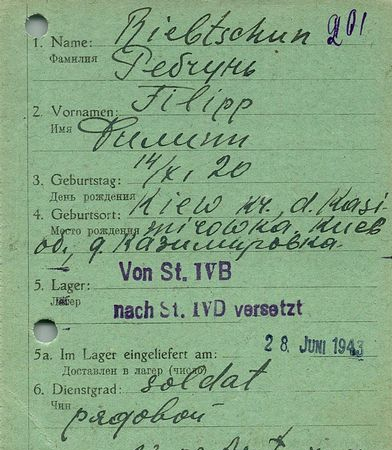 1. Name: Riebtschun 201
Фамилия Ребчунь
2. Vornamen: Filipp
Имя Филипп
14/XI 20
3. Geburtstag:
День рождения
4. Geburtsort: Kiew kr., d. Kasi
Место рождения mirowka, Киев
об, д. Казимировка.
Von St. IVB
5. Lager:
Лагер
nach St. IVD versetzt
28. JUNI 1943
5a. Im Lager eingeliefert am:
Доставлен в лагер (число)
6. Dienstgrad: soldat
Чин рядовой